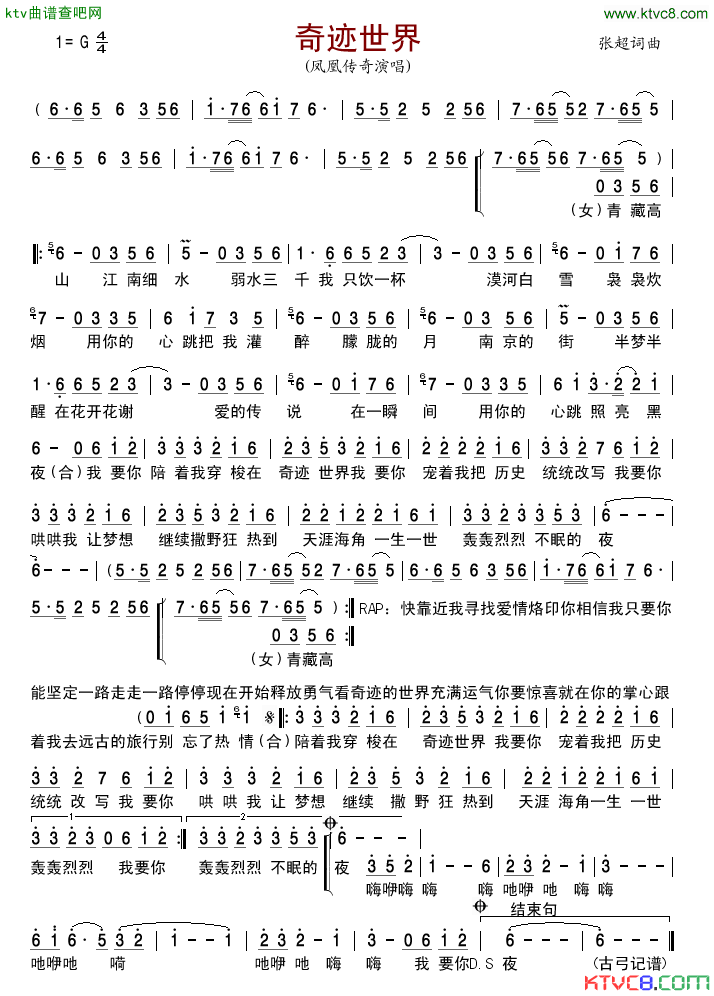 ktv曲谱查吧网
www.ktvc8.com
奇迹世界
1= G 4/4
张超词曲
(凤凰传奇演唱)
( 6·65 6 356 | i·76 6i 76· | 5·52 5 256 | 7·65 52 7·65 5 |
6·65 6 356 | i·76 6i 76· | 5·52 5 256 | 7·65 56 7·65 5 )
0 3 5 6
(女)青 藏高
6 - 0 3 5 6 | 5 - 0 3 5 6 | 1· 6 6 5 2 3 | 3 - 0 3 5 6 | 6 - 0 i 7 6
山 江 南细 水 弱水三 千 我 只饮一杯 漠河白 雪 袅 袅炊
7 - 0 3 3 5 | 6 i 7 3 5 | 6 - 0 3 3 5 | 6 - 0 3 5 6 | 5 - 0 3 5 6
烟 用你的 心 跳把 我 灌 醉 朦胧的 月 南京的 街 半梦半
1· 6 6 5 2 3 | 3 - 0 3 5 6 | 6 - 0 i 7 6 | 7 - 0 3 3 5 | 6 i 3· 2 2 i
醒 在花开花谢 爱的传 说 在一瞬 间 用你的 心跳 照 亮 黑
6 - 0 6 i 2 | 3 3 3 2 i 6 | 2 3 5 3 i 2 | 3 3 3 2 i 6 | 3 3 2 7 6 i 2
夜(合)我 要你 陪 着我穿 梭在 奇迹 世界我 要你 宠着我把 历史 统统改写 我要你
3 3 3 2 i 6 | 2 3 5 3 i 2 | 3 2 i 2 2 i 6 i | 3 3 2 3 3 5 3 | 6 - - -
哄哄我 让梦想 继续撒野狂 热到 天涯海角 一生一世 轰轰烈烈 不眠的 夜
6 - - - | (5·52 5 256 | 7·65 52 7·65 5 | 6·65 6 356 | i·76 6i 76·
5·52 5 256 | 7·65 56 7·65 5 ) :| RAP：快靠近我寻找爱情烙印你相信我只要你
0 3 5 6 :|
(女)青藏高
能坚定一路走走一路停停现在开始释放勇气看奇迹的世界充满运气你要惊喜就在你的掌心跟
(0 i 6 5 i i |: 3 3 3 2 i 6 | 2 3 5 3 i 2 | 3 3 3 2 i 6
着我去远古的旅行别 忘了热 情(合)陪着我穿 梭在 奇迹世界 我要你 宠着我把 历史
3 3 2 7 6 i 2 | 3 3 3 2 i 6 | 2 3 5 3 i 2 | 3 2 i 2 2 i 6 i
统统 改 写 我 要你 哄 哄我 让 梦想 继续 撒 野 狂 热到 天涯 海角一生 一世
1 2
3 3 2 3 0 6 i 2 :| 3 3 2 3 3 5 3 | 6 - -
轰轰烈烈 我要你 轰轰烈烈 不眠的 夜
3 5 2 | i - - i | 2 3 2 - i | i - - i
嗨咿嗨 嗨 嗨 吔咿 吔 嗨 嗨
结束句
6 i 6· 5 3 2 | i - - i | 2 3 2 - i | i - - i 2 | 6 - - | 6 - - -
吔咿吔 嗬 吔咿 吔 嗨 嗨 我 要你D.S 夜 (古弓记谱)
KTVC8.com